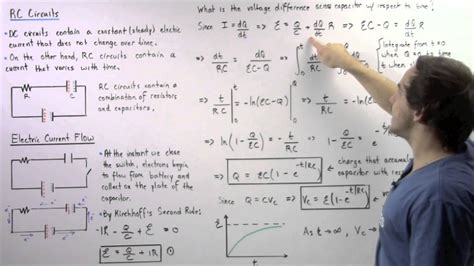 RC Circuits
• DC circuits contain a constant (steady) electric
current that does not change over time.
• On the other hand, RC circuits contain a
current that varies with time.
R
C
RC circuits contain a
combination of resistors
and capacitors.
Electric Current Flow
• At the instant we close
the switch, electrons begin
to flow from battery and
collect on the plate of the
capacitor.
• By Kirchhoff's Second Rule:
-IR - Q/C + ε = 0
ε = Q/C + IR ①
What is the voltage difference across capacitor w/ respect to time?
Since I = dQ/dt ⇒ ε = Q/C + dQ/dt R ⇒ εC - Q =
⇒ dt/RC = dQ/(εC-Q) ⇒ ∫ dt/RC =
Integrate from t=0
when
time
⇒ t/RC = -ln(εC-Q)
⇒ ln(1 - Q/εC) = -t/RC ⇒ 1 - Q/εC =
⇒ Q = εC(1 - e^(-t/RC))
charge that accumulates
capacitor with resp
Since Q = CVc ⇒ Vc = ε(1 - e^(-t/RC))
As t → ∞, Vc